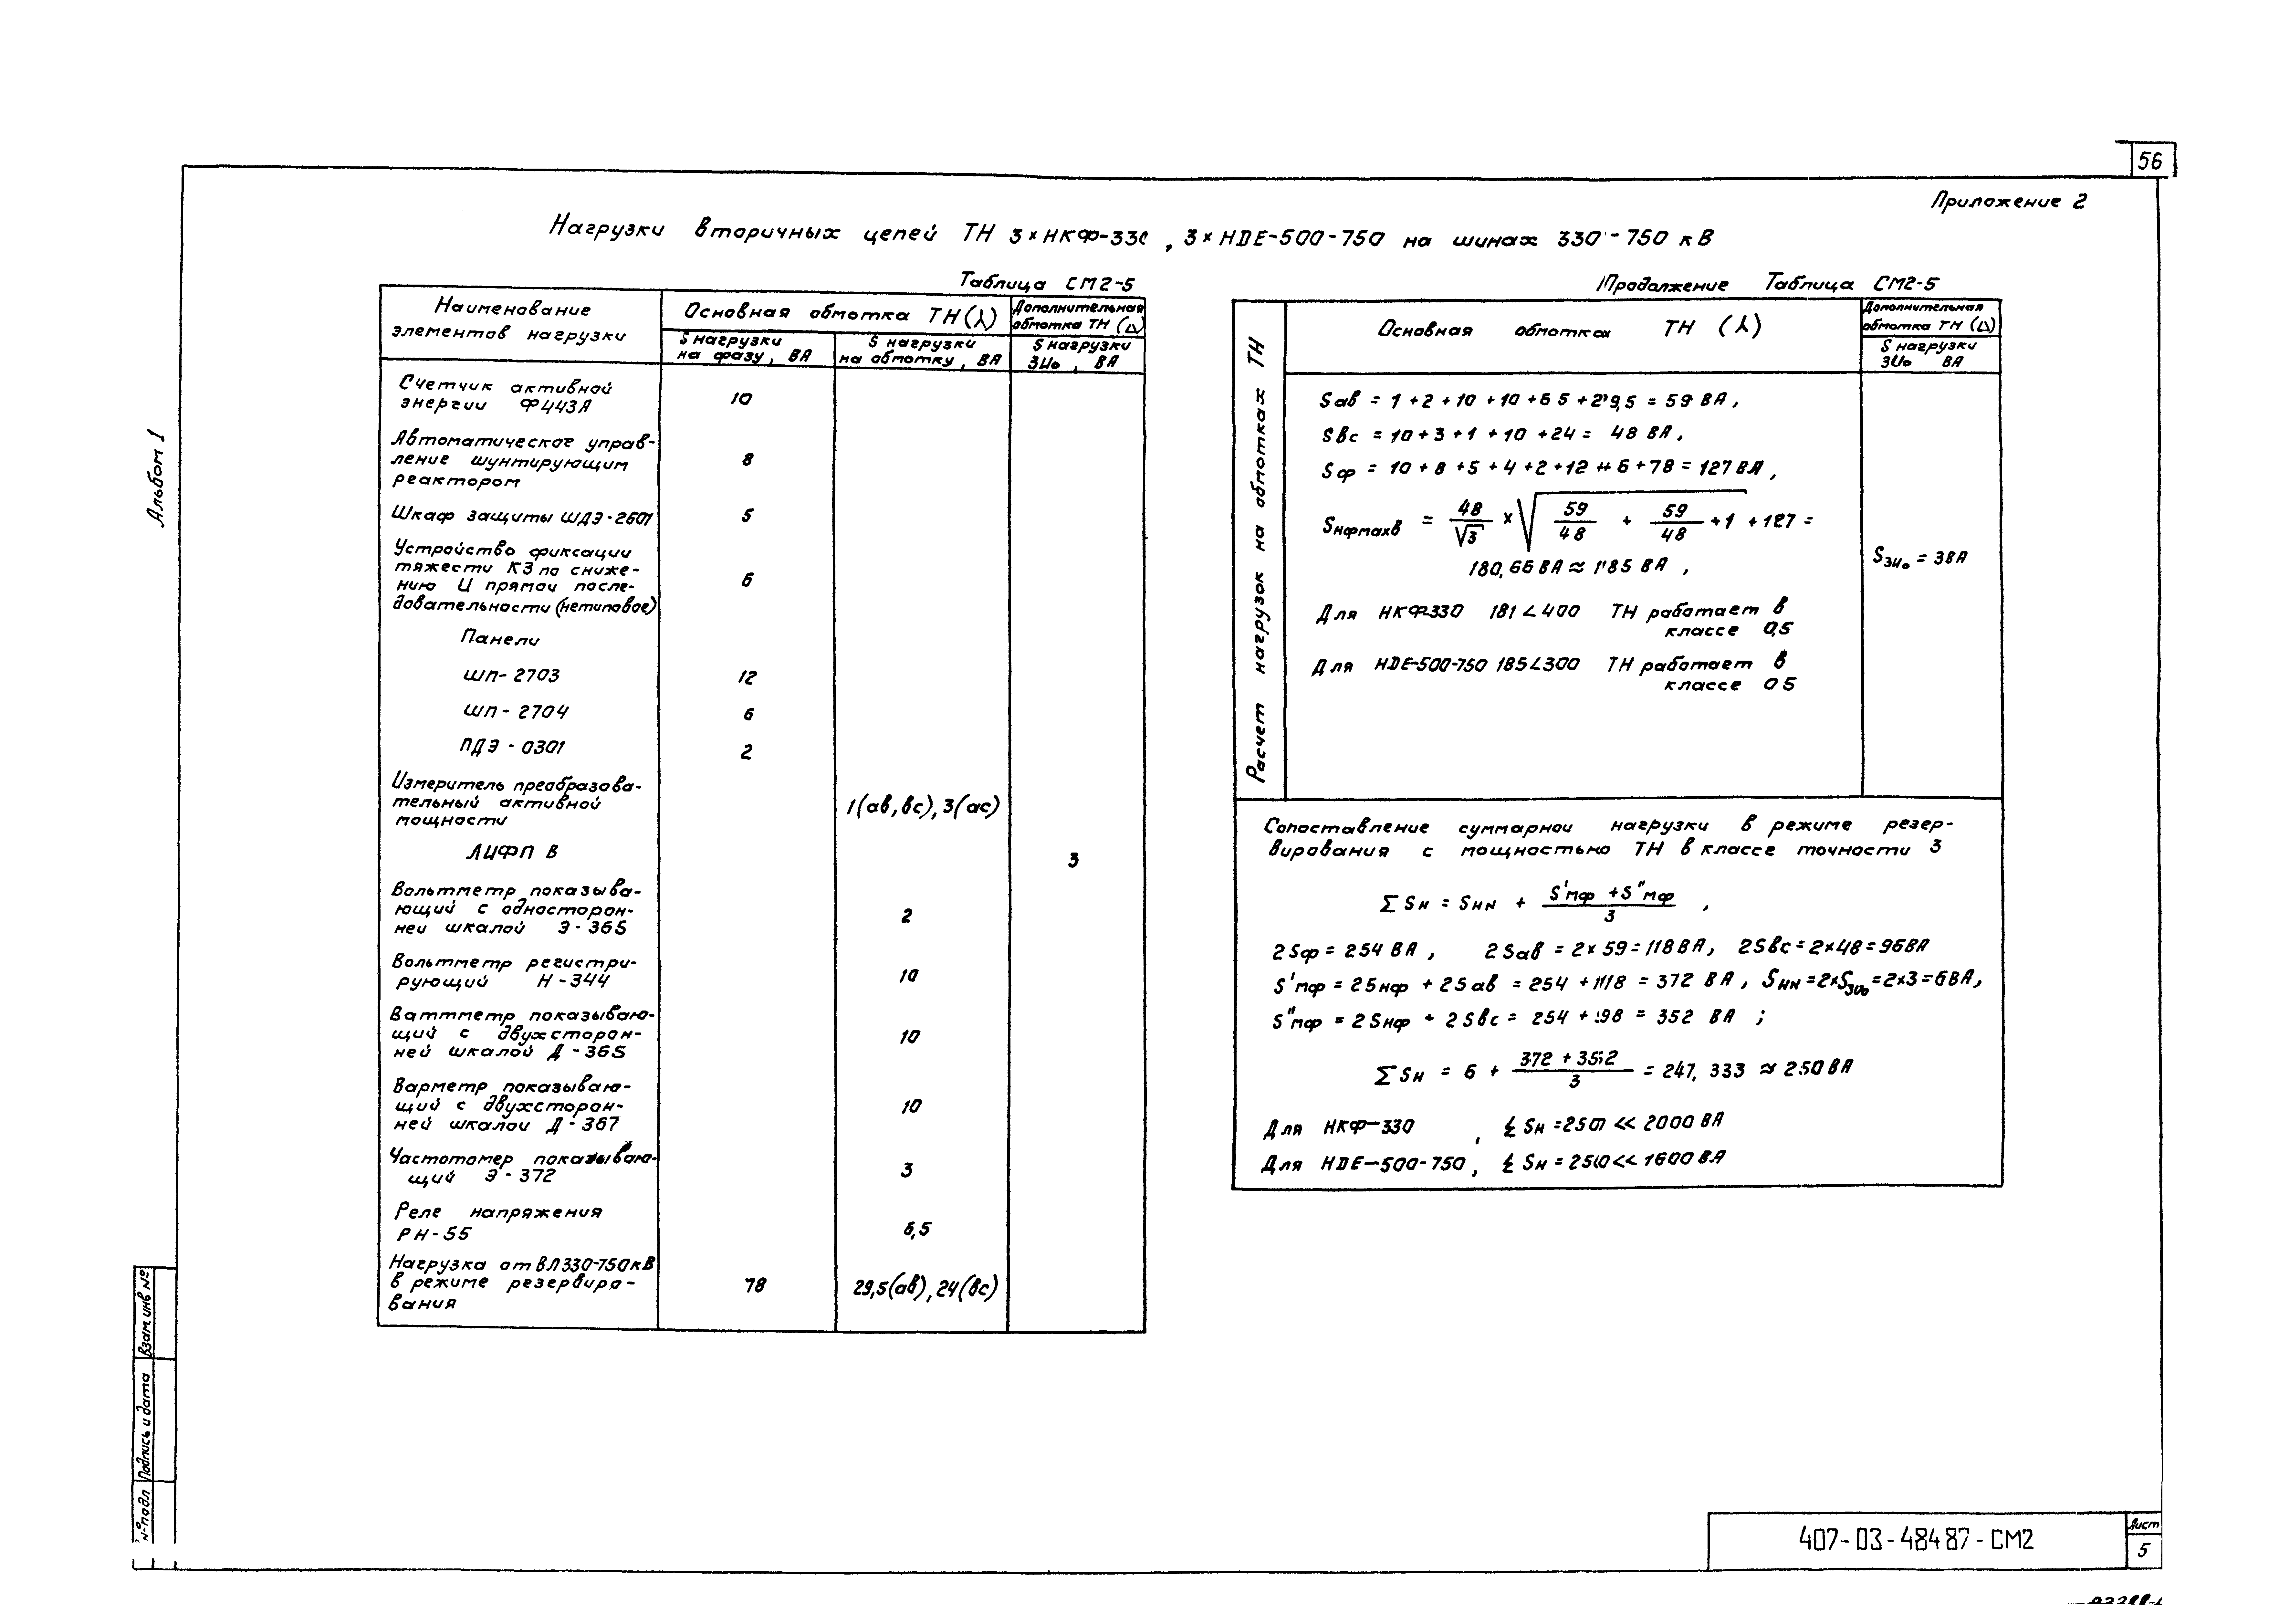 56
Приложение 2
Нагрузки вторичных цепей ТН 3×НКФ-330, 3×НDЕ-500-750 на шинах 330-750 кВ
Таблица СМ2-5
Наименование элементов нагрузки
Основная обмотка ТН (⅄)
Дополнительная обмотка ТН (△)
S нагрузки на фазу, ВА
S нагрузки на обмотку, ВА
S нагрузки 3Uо, ВА
Счетчик активной
энергии Ф443А 10
Автоматическое управ-
ление шунтирующим 8
реактором
Шкаф защиты ШДЭ-2601 5
Устройство фиксации
тяжести КЗ по сниже-
нию U прямой после- 6
довательности (нетиповое)
Панели
ШП-2703 12
ШП-2704 6
ПДЭ-0301 2
Измеритель преобразова-
тельный активной 1(ав,вс), 3(ас)
мощности
ЛИФП В 3
Вольтметр показыва-
ющий с односторон- 2
ней шкалой Э-365
Вольтметр регистри-
рующий Н-344 10
Ваттметр показываю-
щий с двухсторон- 10
ней шкалой Д-365
Варметр показываю-
щий с двухсторон- 10
ней шкалой Д-367
Частотомер показываю-
щий Э-372 3
Реле напряжения
РН-55 6,5
Нагрузка от ВЛ 330-750кВ
в режиме резервиро- 78 29,5(ав), 24(вс)
вания
Продолжение Таблица СМ2-5
Расчет нагрузок на обмотках ТН
Основная обмотках ТН (⅄)
Дополнительная обмотка ТН (△)
S нагрузки 3Uо ВА
Sав = 1+2+10+10+6 5+29,5 = 59 ВА,
Sвс = 10+3+1+10+24 = 48 ВА,
Sф = 10+8+5+4+2+12+6+78 = 127 ВА,
Sнфmaxв = 48/√3 × √(59/48 + 59/48 + 1 + 127 =
180,66 ВА ≈ 185 ВА,
S3uо = 3ВА
Для НКФ-330 181<400 ТН работает в
классе 0,5
Для НDЕ-500-750 185<300 ТН работает в
классе 0 5
Сопоставление суммарной нагрузки в режиме резер-
вирования с мощностью ТН в классе точности 3
∑Sн = Sнн + (S'мф + S"мф)/3 ,
2Sф = 254 ВА, 2Sав = 2×59 = 118 ВА, 2Sвс = 2×48 = 96ВА
S'мф = 2Sнф + 2Sав = 254 + 118 = 372 ВА, Sнн = 2×S3uо = 2×3 = 6ВА,
S"мф = 2Sнф + 2Sвс = 254 + 98 = 352 ВА ;
∑Sн = 6 + (372 + 352)/3 = 247,333 ≈ 250 ВА
Для НКФ-330, ∑Sн = 250 << 2000 ВА
Для НDЕ-500-750, ∑Sн = 250 << 1600 ВА
Альбом 1
Взам инв №
Подпись и дата
№ подл
407-03-484 87-СМ2
Лист
5